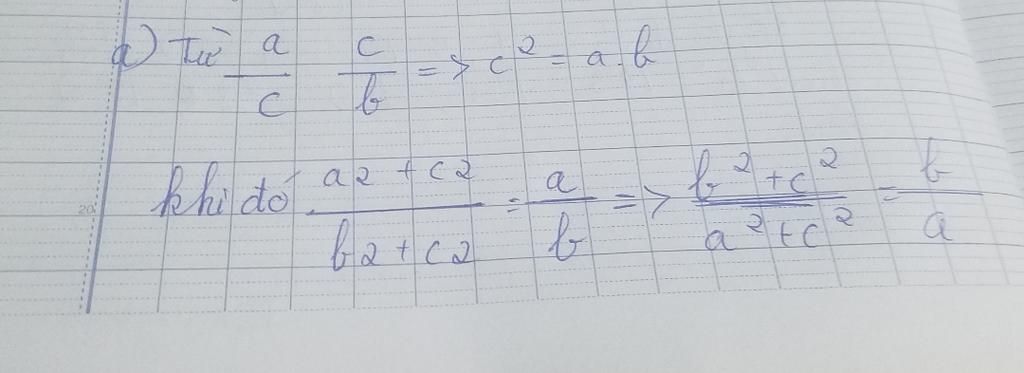 a) Từ a/c c/b => c² = a.b
khi đó a2 + c2/b2 + c2 = a/b => b² + c²/a² + c² = b/a
20